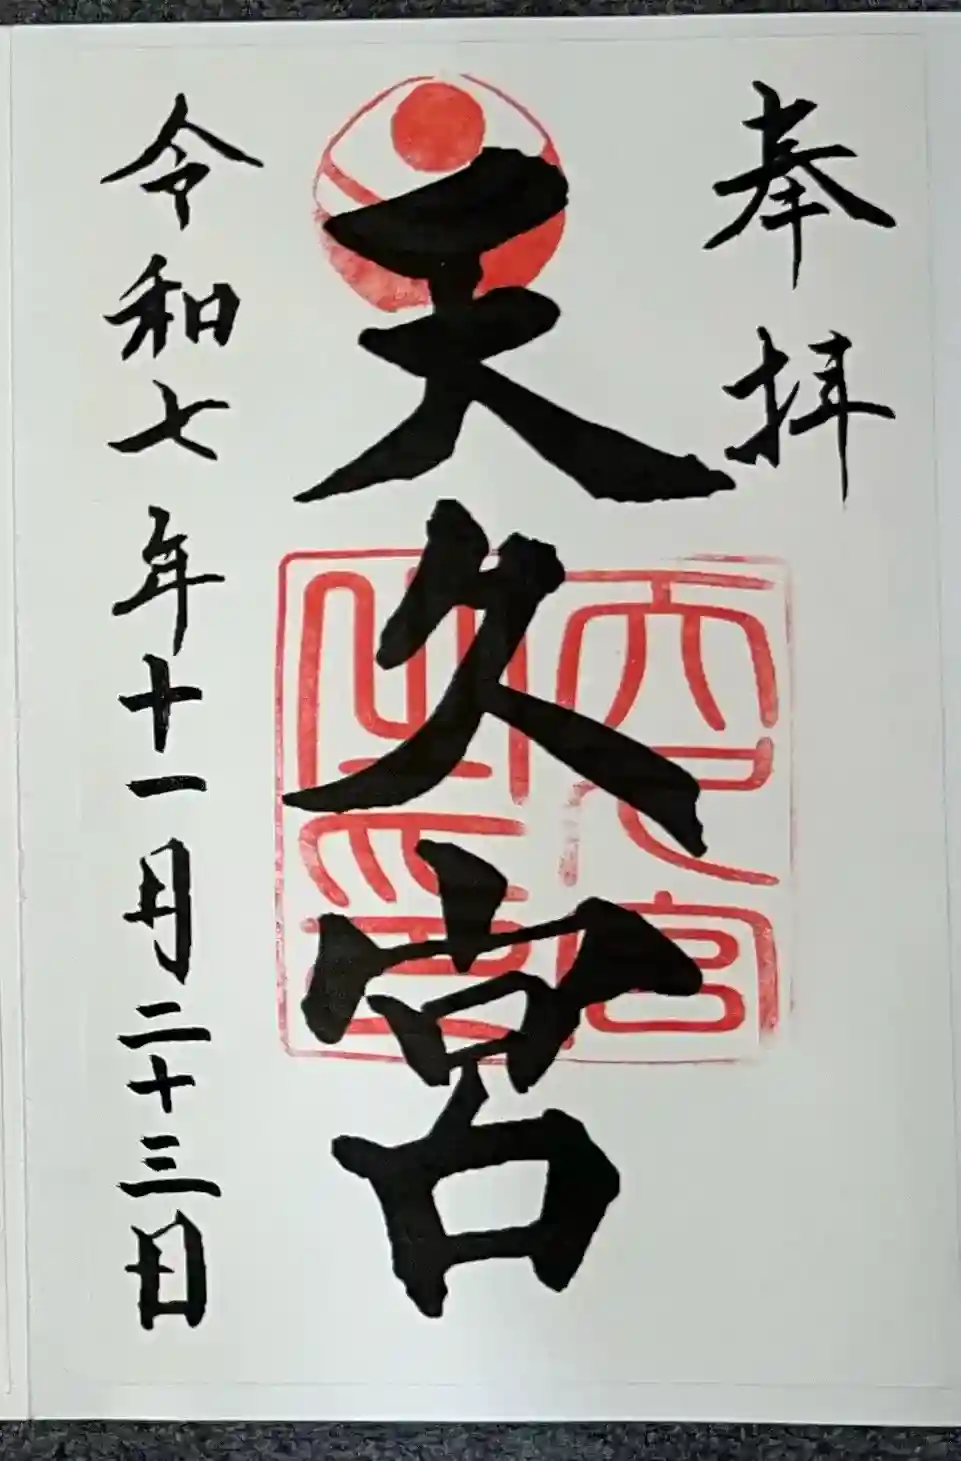 奉拝
天久宮
天久宮之印
令和七年十一月二十三日